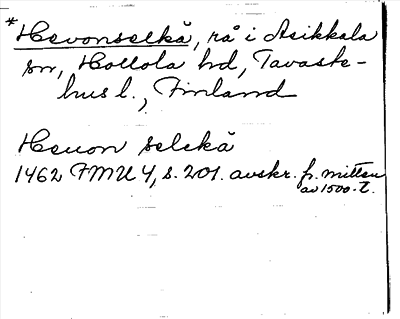 *Hevonselkä, rå i Asikkala
sn, Hollola hd, Tavaste-
hus l., Finland
Heuon selekä
1462 FMU 4, s. 201. avskr. fr. mitten
av 1500-t.